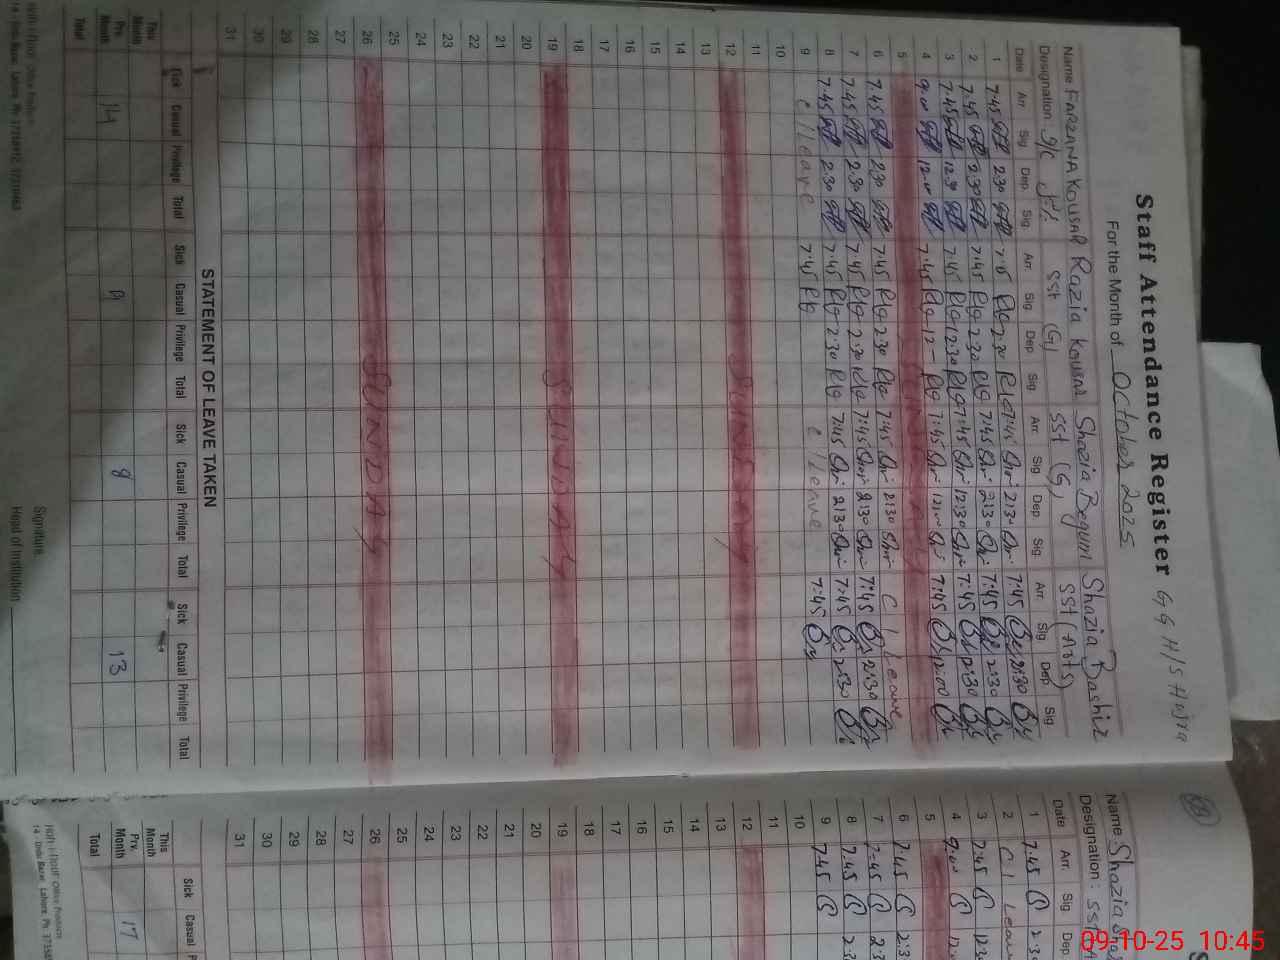 Staff Attendance Register G G H/S Hujra
For the Month of October 2025
Name FARZANA KOUSAR Razia Kousar Shazia Begum Shazia Bashir
Designation S/C SST (G) SST (G) SST (Arts)
Date Arr. Sig Dep. Sig. Arr. Sig. Dep Sig. Arr. Sig Dep Sig. Arr Sig Dep Sig
1 7.45 2.30 2.30 7:45 2:30 7:45 2:30
2 7.45 2.30 7.45 2.30 7:45 2:30 7:45 2:30
3 7.45 12.30 7.45 12.30 7:45 12:30 7:45 12:30
4 9.00 12.00 7.45 12 - 7:45 12:00 7:45 12:00
5 SUNDAY
6 7.45 2.30 7.45 2.30 7:45 2:30 C Leave
7 7.45 2.30 7.45 2.30 7:45 2:30 7:45 2:30
8 7.45 2.30 7.45 2.30 7:45 2:30 7:45 2:30
9 c/Leave 7.45 c/Leave 7:45
10
11
12 SUNDAY
13
14
15
16
17
18
19 SUNDAY
20
21
22
23
24
25
26 SUNDAY
27
28
29
30
31
STATEMENT OF LEAVE TAKEN
Sick Casual Privilege Total Sick Casual Privilege Total Sick Casual Privilege Total Sick Casual Privilege Total
This Month
Prv. Month 14 9 8 13
Total
Signature
Head of Institution
14 - Urdu Bazar Lahore. Ph:
Name Shazia
Designation : SST
Date Arr. Sig Dep
1 7.45 2.30
2 C/ Leave
3 7.45 12.30
4 9.00
5
6 7.45
7 7.45
8 7.45
9 7.45
10
11
12
13
14
15
16
17
18
19
20
21
22
23
24
25
26
27
28
29
30
31
Sick Casual
This Month
Prv. Month 17
Total
14 - Urdu Bazar Lahore. Ph:
09-10-25 10:45